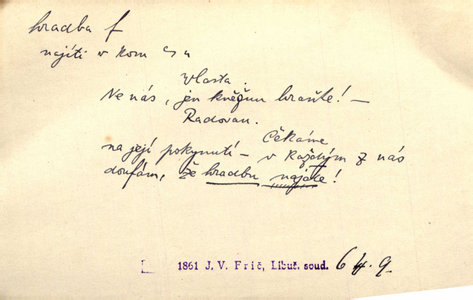 hradba f
najíti v kom
Vlasta.
Ne nás, jen kněžnu hraňte! —
Radovan.
Čekáme
na její pokynutí — v každým z nás
doufám, že hradbu najde!
1861 J. V. Frič, Libuš. soud. 64.9.